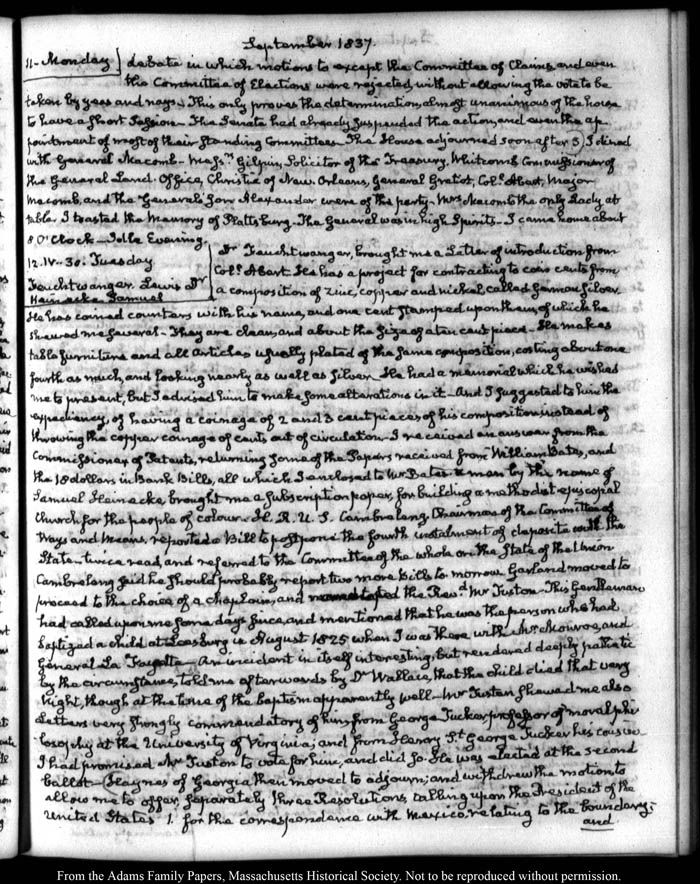 September 1837.
11 - Monday debate in which motions to except the Committee of Claims, and even
the Committee of Elections were rejected, without allowing the vote to be
taken by yeas and nays. This only proves the determination, almost unanimous of the house
to have a short Session. The Senate had already suspended the action, and even the ap
pointment of most of their Standing Committees. The House adjourned soon after 3, I dined
with General Macomb. Messrs Gilpin, Solicitor of the Treasury, Whitcomb Commissioner of
the General Land-Office, Christie of New Orleans, General Gratiot, Col. Abert, Major
Macomb, and the General's Son Alexander were of the party - Mrs Macomb the only Lady at
table. I toasted the Memory of Plattsburg. The General was in high Spirits - I came home about
8 O'Clock - Idle Evening.
12. IV - 30. Tuesday
Feuchtwanger, Lewis Dr
Heinecke Samuel
Dr Feuchtwanger, brought me a Letter of introduction from
Col. Abert. He has a project for contracting to coin cents from
a composition of Zinc, copper and nickel, called German Silver
He has coined counters with his name, and one cent stamped upon them, of which he
shewed me several - They are clean, and about the size of a ten cent piece - He makes
table furniture and all articles usually plated of the same composition, costing about one
fourth as much, and looking nearly as well as Silver. He had a memorial which he wished
me to present, but I advised him to make some alterations in it - And I suggested to him the
expediency, of having a coinage of 2 and 3 cent pieces of his composition instead of
throwing the copper coinage of cents out of circulation - I received an answer from the
Commissioner of Patents, returning some of the Papers received from William Bates, and
the 18 dollars in Bank Bills, all which I enclosed to Mr Bates. A man by the name of
Samuel Heinecke, brought me a subscription paper, for building a methodist episcopal
Church for the people of colour - H. R. U. S. Cambreleng, Chairman of the Committee of
Ways and Means, reported a Bill to postpone the fourth instalment of deposite with the
State - twice read, and referred to the Committee of the whole on the State of the Union
Cambreleng said he should probably report two more Bills to-morrow. Garland moved to
proceed to the choice of a chaplain, and the Revd Mr Tuston. This Gentleman
had called upon me some days since, and mentioned that he was the person who had
baptized a child at Leesburg in August 1825 when I was there with Mr Monroe, and
General La Fayette - An incident in itself interesting, but rendered deeply pathetic
by the circumstance, told me afterwards by Dr Wallace, that the child died that very
Night, though at the time of the baptism apparently well - Mr Tuston shewed me also
Letters very strongly commendatory of him, from George Tucker, professor of moral phi
losophy at the University of Virginia; and from Henry St George Tucker his cousin
I had promised Mr Tuston to vote for him, and did so. He was elected at the second
ballot - Haynes of Georgia then moved to adjourn; and withdrew the motion to
allow me to offer, separately three Resolutions, calling upon the President of the
United States 1. for the correspondence with Mexico, relating to the boundary;
and
From the Adams Family Papers, Massachusetts Historical Society. Not to be reproduced without permission.